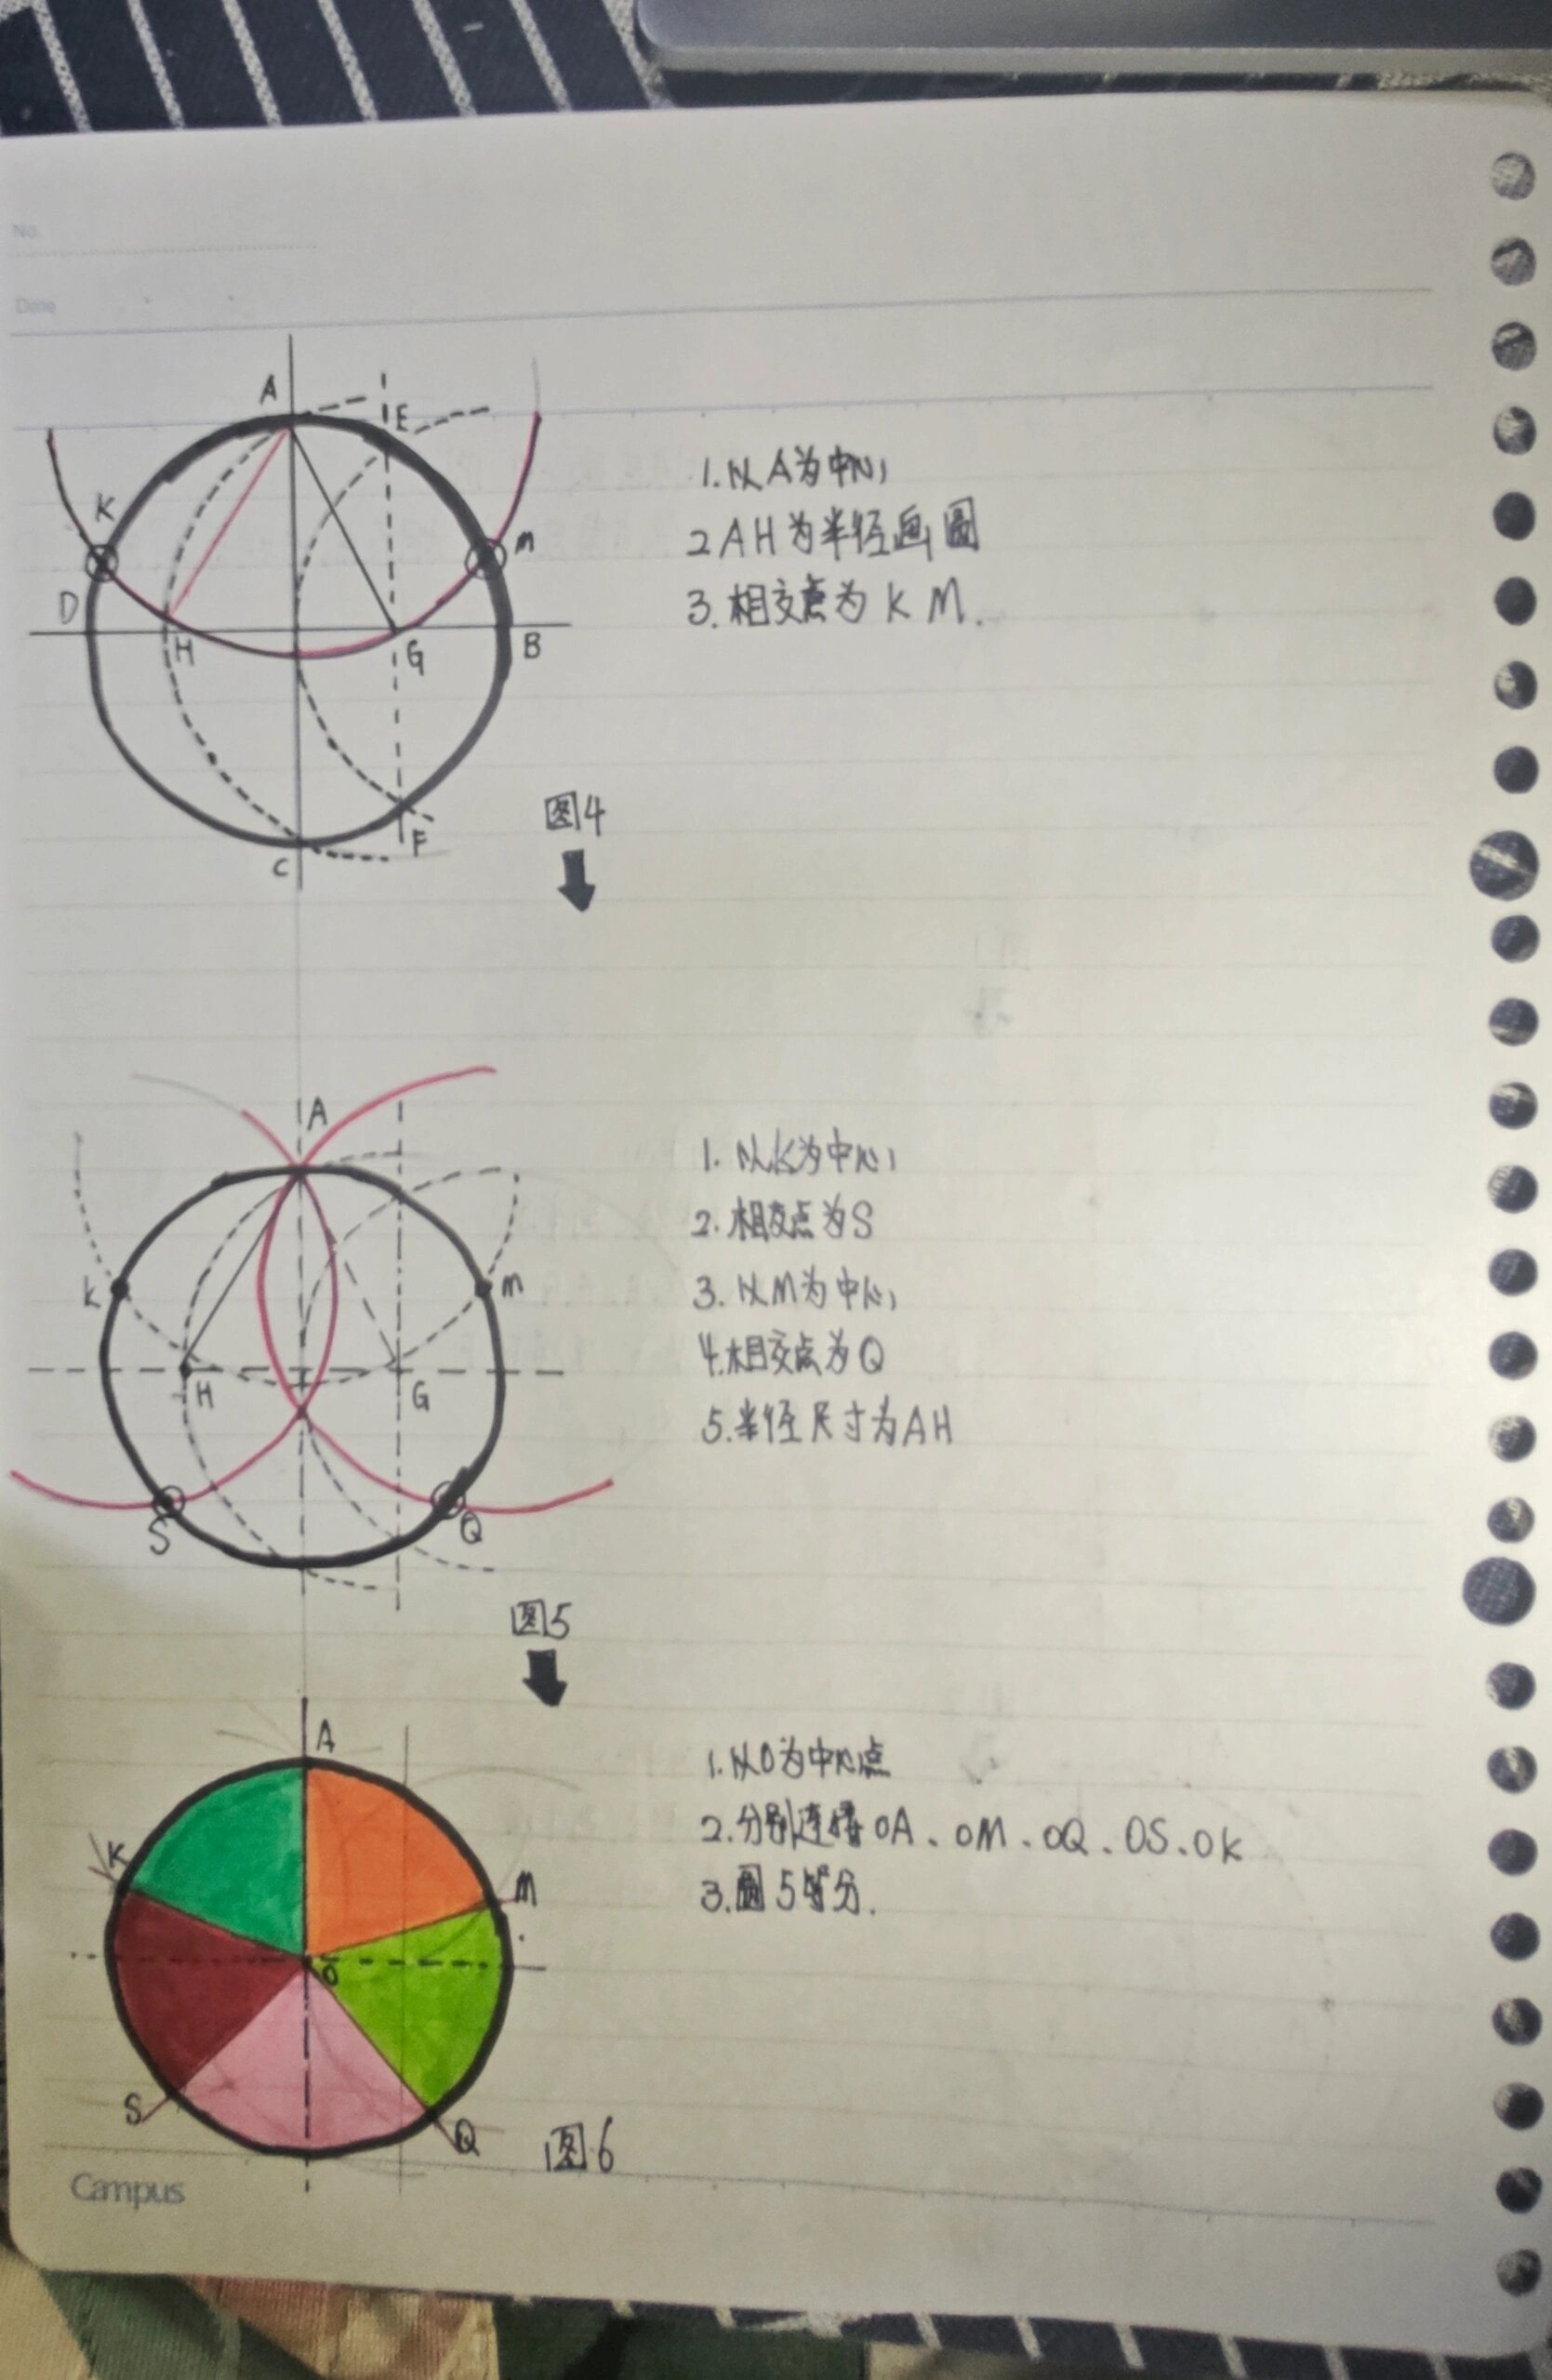 No.
Date
A
E
K
M
D
H
G
B
F
C
1.以A为中心,
2AH为半径画圆
3.相交点为KM.
图4
A
K
M
H
G
S
Q
1.以K为中心,
2.相交点为S
3.以M为中心,
4.相交点为Q
5.半径尺寸为AH
图5
A
K
M
O
S
Q
1.以O为中心点
2.分别连接OA、OM、OQ、OS、OK
3.圆5等分.
图6
Campus